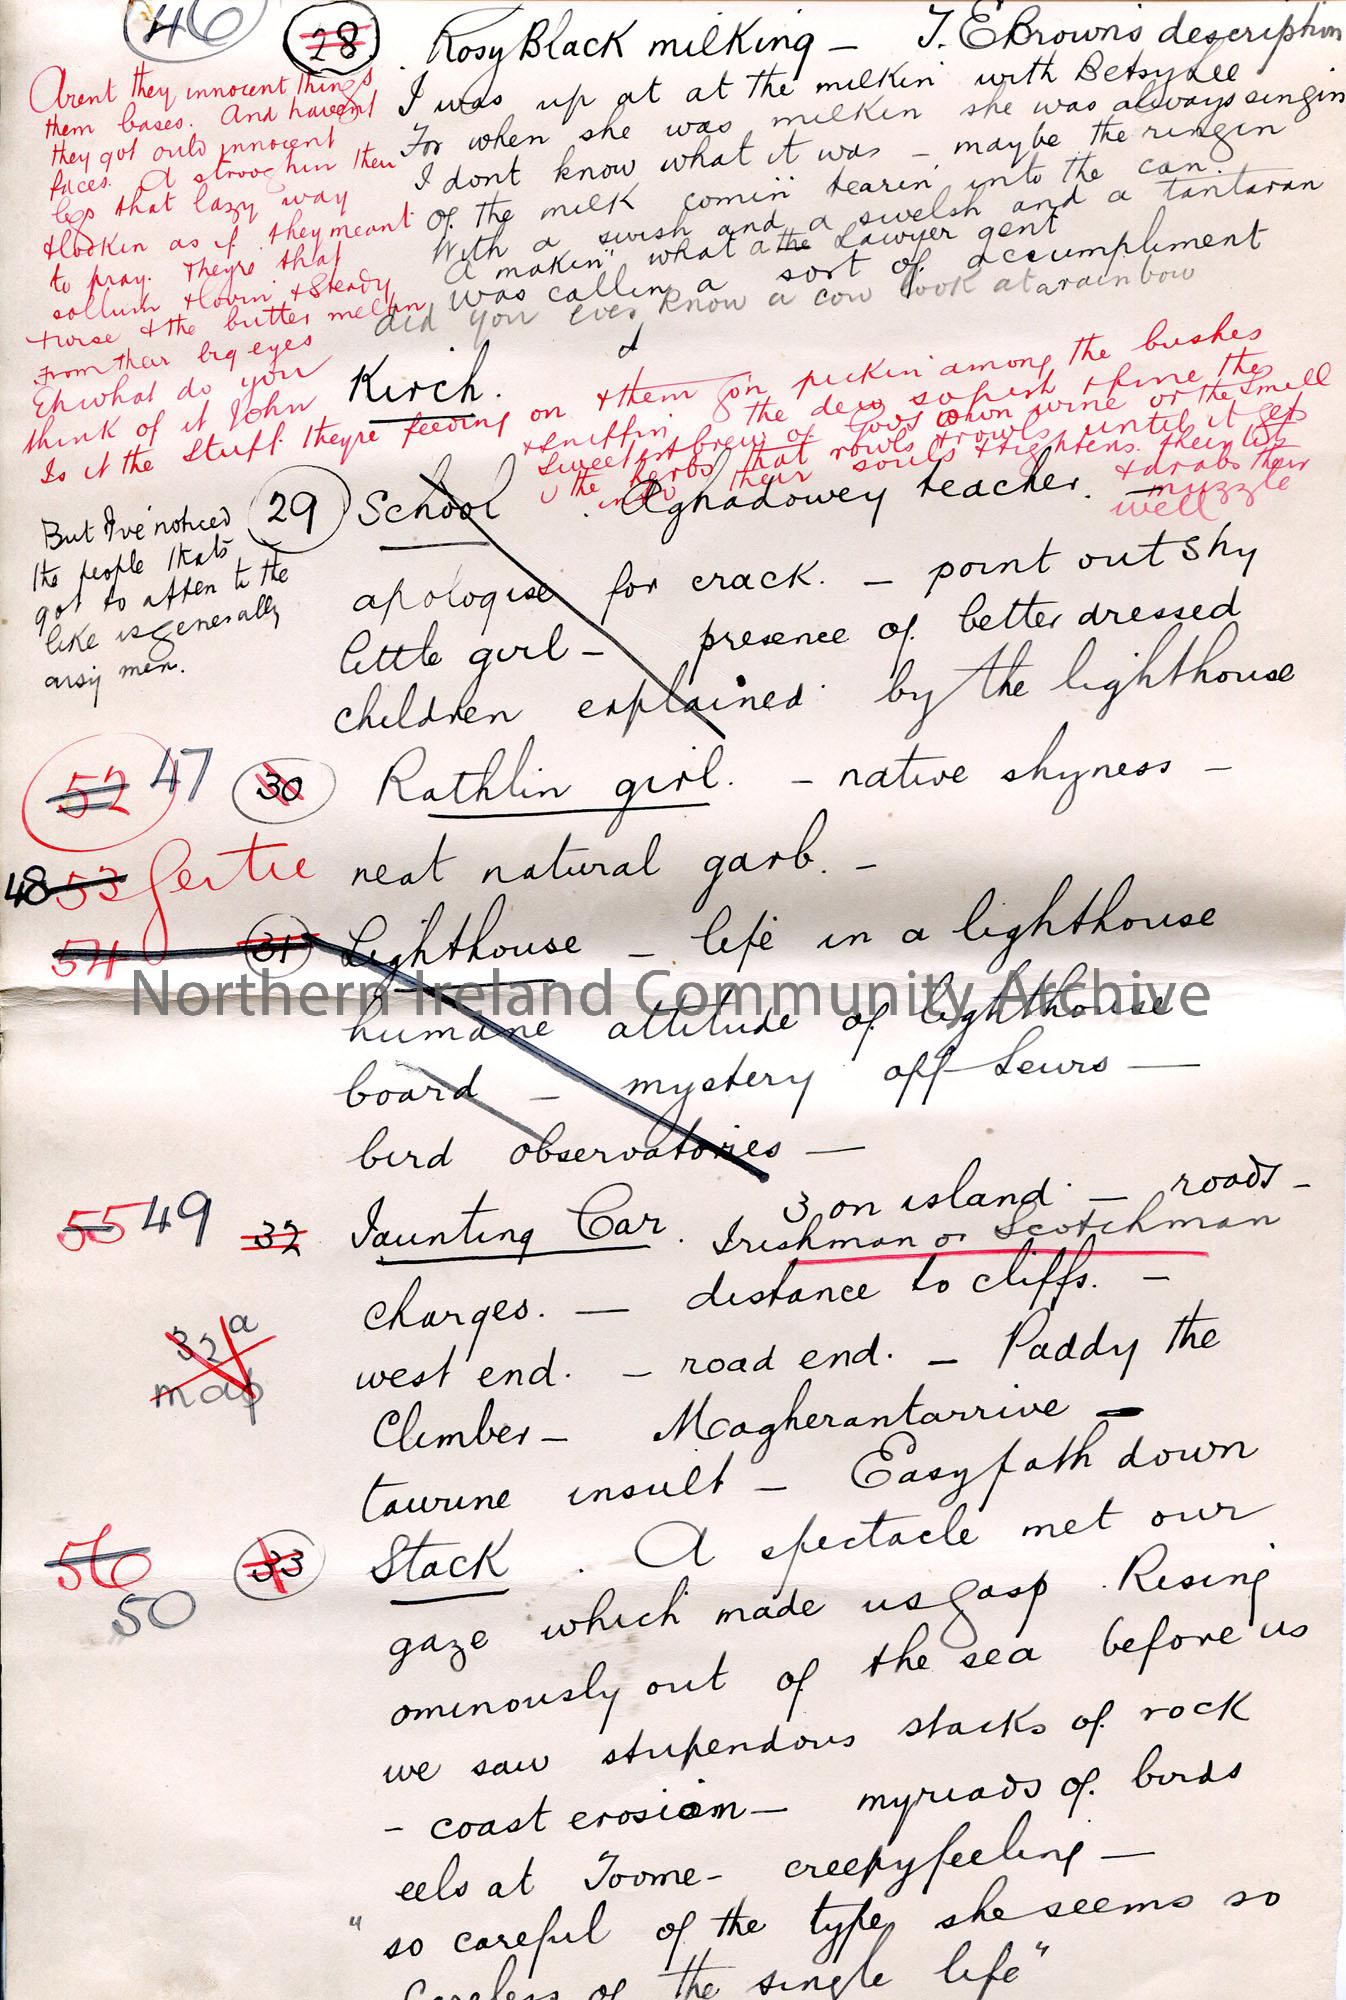 46 28. Rosy Black milking - T. E Brown's description
I was up at at the milkin' with Betsy Lee
For when she was milkin she was always singin
I dont know what it was - maybe the ringin
Of the milk comin' tearin' into the can.
With a swish and a swelsh and a tantaran
A makin' what a the Lawyer gent
was callin a sort of accumpliment
did you ever know a cow look at a rainbow
Arent they innocent things
them bases. And havent
they got ould innocent
faces. A strooghin their
legs that lazy way
& lookin as if they meant
to pray. Theyre that
sollum & lovin & steady
& the butter meltin
From their big eyes
Eh what do you
think of it John
Is it the stuff theyre feeding on & them on pickin among the bushes
& sniffin the dew
Sweetest brew of God's own wine or the smell
o the herbs that rowls & rowls until it gets
into their souls & tightens their lit
& drabs their
muzzle
well
Kirch.
29 School. Aghadowey teacher. -
apologise for crack. - point out shy
little girl - presence of better dressed
children explained by the lighthouse
But I've noticed
the people thats
got to atten to the
like is generally
aisy men.
52 47 30 Rathlin girl. - native shyness -
48 53 Gertie neat natural garb. -
54 31 Lighthouse - life in a lighthouse
Northern Ireland Community Archive
humane attitude of lighthouse
board - mystery off Lewis -
bird observatories -
55 49 32 Jaunting Car. 3 on island - roads -
Irishman or Scotchman
charges. - distance to cliffs. -
32a
map
west end. - road end. - Paddy the
Climber - Magherantarrive -
taurine insult - Easy path down
56 50 33 Stack. A spectacle met our
gaze which made us gasp. Rising
ominously out of the sea before us
we saw stupendous stacks of rock
- coast erosion - myriads of birds
eels at Toome - creepy feeling -
"so careful of the type she seems so
Careless of the single life"